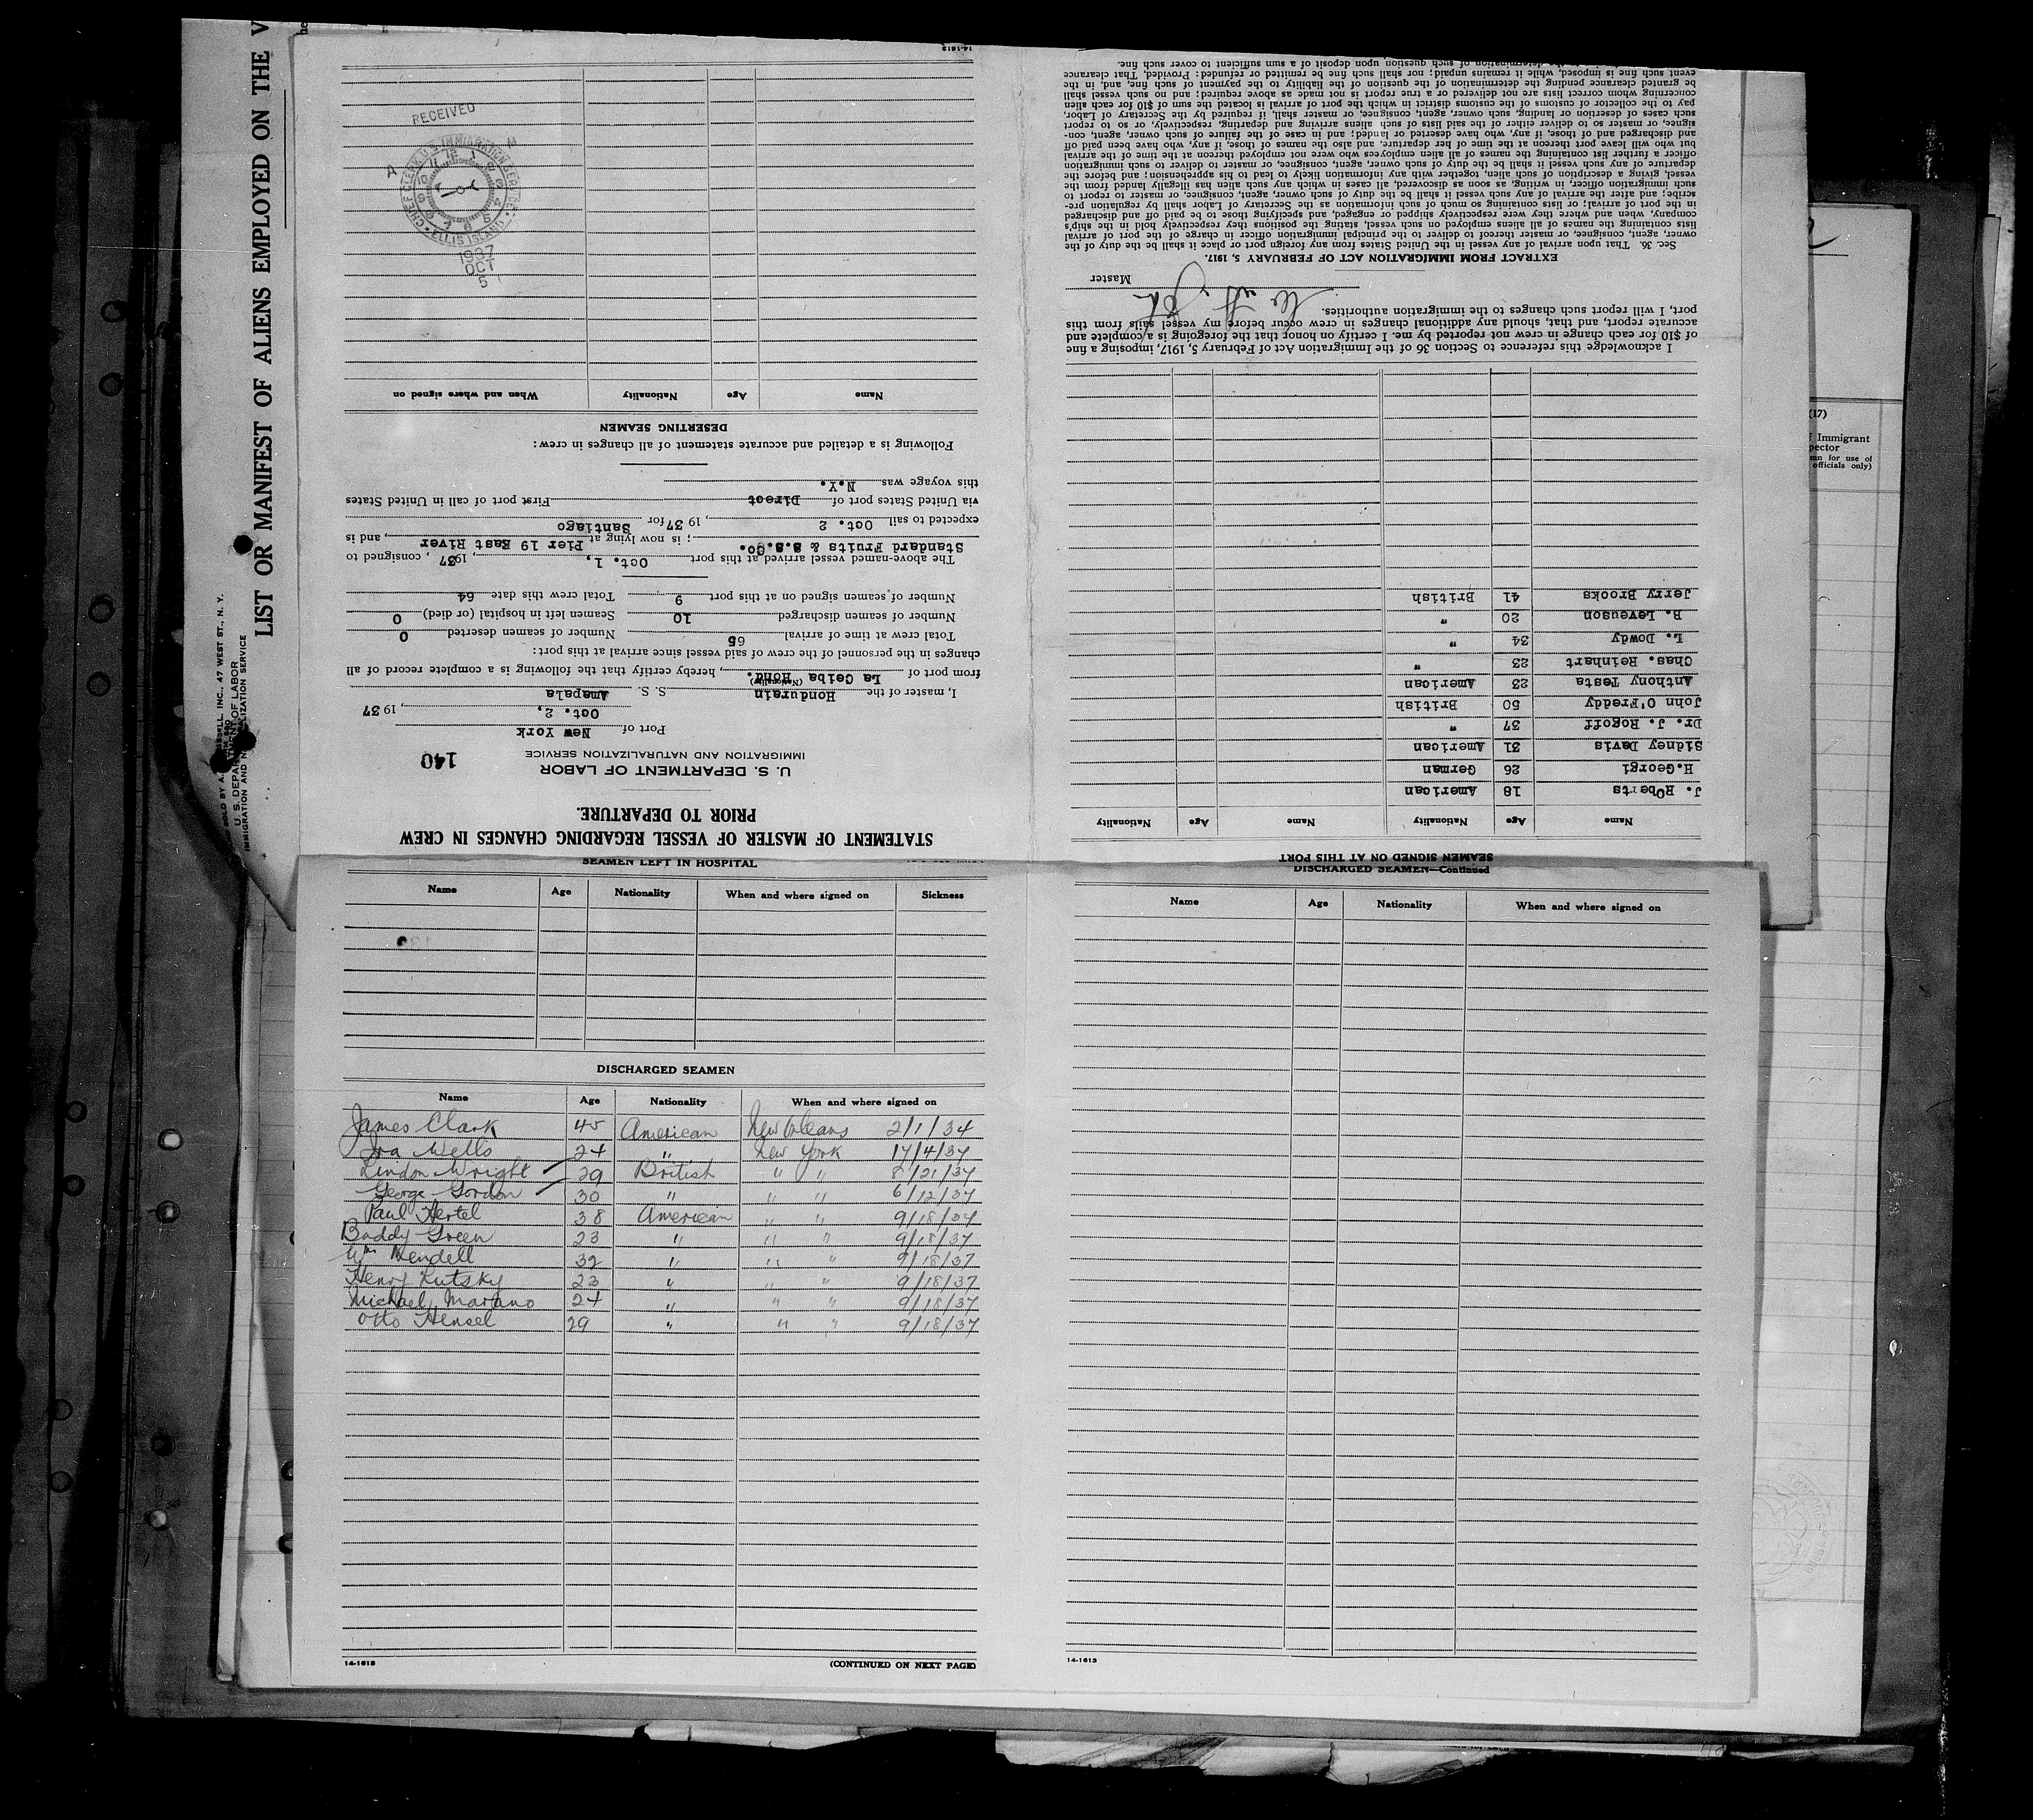 LIST OR MANIFEST OF ALIENS EMPLOYED ON THE V
U. S. DEPARTMENT OF LABOR
IMMIGRATION AND NATURALIZATION SERVICE
47 WEST ST., N. Y.
STATEMENT OF MASTER OF VESSEL REGARDING CHANGES IN CREW
PRIOR TO DEPARTURE.
U. S. DEPARTMENT OF LABOR
IMMIGRATION AND NATURALIZATION SERVICE
140
Port of New York
Oct. 2, 1937
I, master of the Hondurain S. S. Amapala
(Nationality)
from port of La Ceiba Hond., hereby certify that the following is a complete record of all
changes in the personnel of the crew of said vessel since arrival at this port:
Total crew at time of arrival 65 Number of seamen deserted 0
Number of seamen discharged 10 Seamen left in hospital (or died) 0
Number of seamen signed on at this port 9 Total crew this date 64
The above-named vessel arrived at this port Oct. 1, 1937, consigned to
Standard Fruits & S.S.Co. ; is now lying at Pier 19 East River, and is
expected to sail Oct. 2, 1937 for Santiago
via United States port of Direct First port of call in United States
this voyage was N.Y.
Following is a detailed and accurate statement of all changes in crew:
DESERTING SEAMEN
Name Age Nationality When and where signed on
RECEIVED
CHIEF CLERK U.S. IMMIGRATION SERVICE
ELLIS ISLAND
1937
OCT
5
14-1613
SEAMEN SIGNED ON AT THIS PORT
Name Age Nationality Name Age Nationality
J. Roberts 18 American
H.Georgi 26 German
Sidney Davis 31 American
Dr. J. Rogoff 37 "
John O'Freddy 50 British
Anthony Testa 23 American
Chas. Reinhart 23 "
L. Dowdy 34 "
B. Levenson 20 "
Jerry Brooks 41 British
I acknowledge this reference to Section 36 of the Immigration Act of February 5, 1917, imposing a fine
of $10 for each change in crew not reported by me. I certify on honor that the foregoing is a complete and
accurate report, and that, should any additional changes in crew occur before my vessel sails from this
port, I will report such changes to the immigration authorities.
Master
EXTRACT FROM IMMIGRATION ACT OF FEBRUARY 5, 1917.
Sec. 36. That upon arrival of any vessel in the United States from any foreign port or place it shall be the duty of the
owner, agent, consignee, or master thereof to deliver to the principal immigration officer in charge of the port of arrival
lists containing the names of all aliens employed on such vessel, stating the positions they respectively hold in the ship's
company, when and where they were respectively shipped or engaged, and specifying those to be paid off and discharged
in the port of arrival; or lists containing so much of such information as the Secretary of Labor shall by regulation pre-
scribe; and after the arrival of any such vessel it shall be the duty of such owner, agent, consignee, or master to report to
such immigration officer, in writing, as soon as discovered, all cases in which any such alien has illegally landed from the
vessel, giving a description of such alien, together with any information likely to lead to his apprehension; and before the
departure of any such vessel it shall be the duty of such owner, agent, consignee, or master to deliver to such immigration
officer a further list containing the names of all alien employees who were not employed thereon at the time of the arrival
but who will leave port thereon at the time of her departure, and also the names of those, if any, who have been paid off
and discharged and of those, if any, who have deserted or landed; and in case of the failure of such owner, agent, con-
signee, or master so to deliver either of the said lists of such aliens arriving and departing, respectively, or so to report
such cases of desertion or landing, such owner, agent, consignee, or master shall, if required by the Secretary of Labor,
pay to the collector of customs of the customs district in which the port of arrival is located the sum of $10 for each alien
concerning whom correct lists are not delivered or a true report is not made as above required; and no such vessel shall
be granted clearance pending the determination of the question of the liability to the payment of such fine, and, in the
event such fine is imposed, while it remains unpaid; nor shall such fine be remitted or refunded: Provided, That clearance
determination of such question upon deposit of a sum sufficient to cover such fine.
SEAMEN LEFT IN HOSPITAL
Name Age Nationality When and where signed on Sickness
DISCHARGED SEAMEN
Name Age Nationality When and where signed on
James Clark 45 American New Orleans 2/1/34
Ira Wells 24 " New York 17/4/37
Lindon Wright 29 British " " 8/21/37
George Gordon 30 " " " 6/12/37
Paul Hertel 38 American " " 9/18/37
Buddy Green 23 " " " 9/18/37
Wm Kendell 32 " " " 9/18/37
Henry Lutsky 23 " " " 9/18/37
Michael Marano 24 " " " 9/18/37
Otto Hensel 29 " " " 9/18/37
14-1613
(CONTINUED ON NEXT PAGE)
DISCHARGED SEAMEN—Continued
Name Age Nationality When and where signed on
14-1613
(17)
Immigrant
officials only)